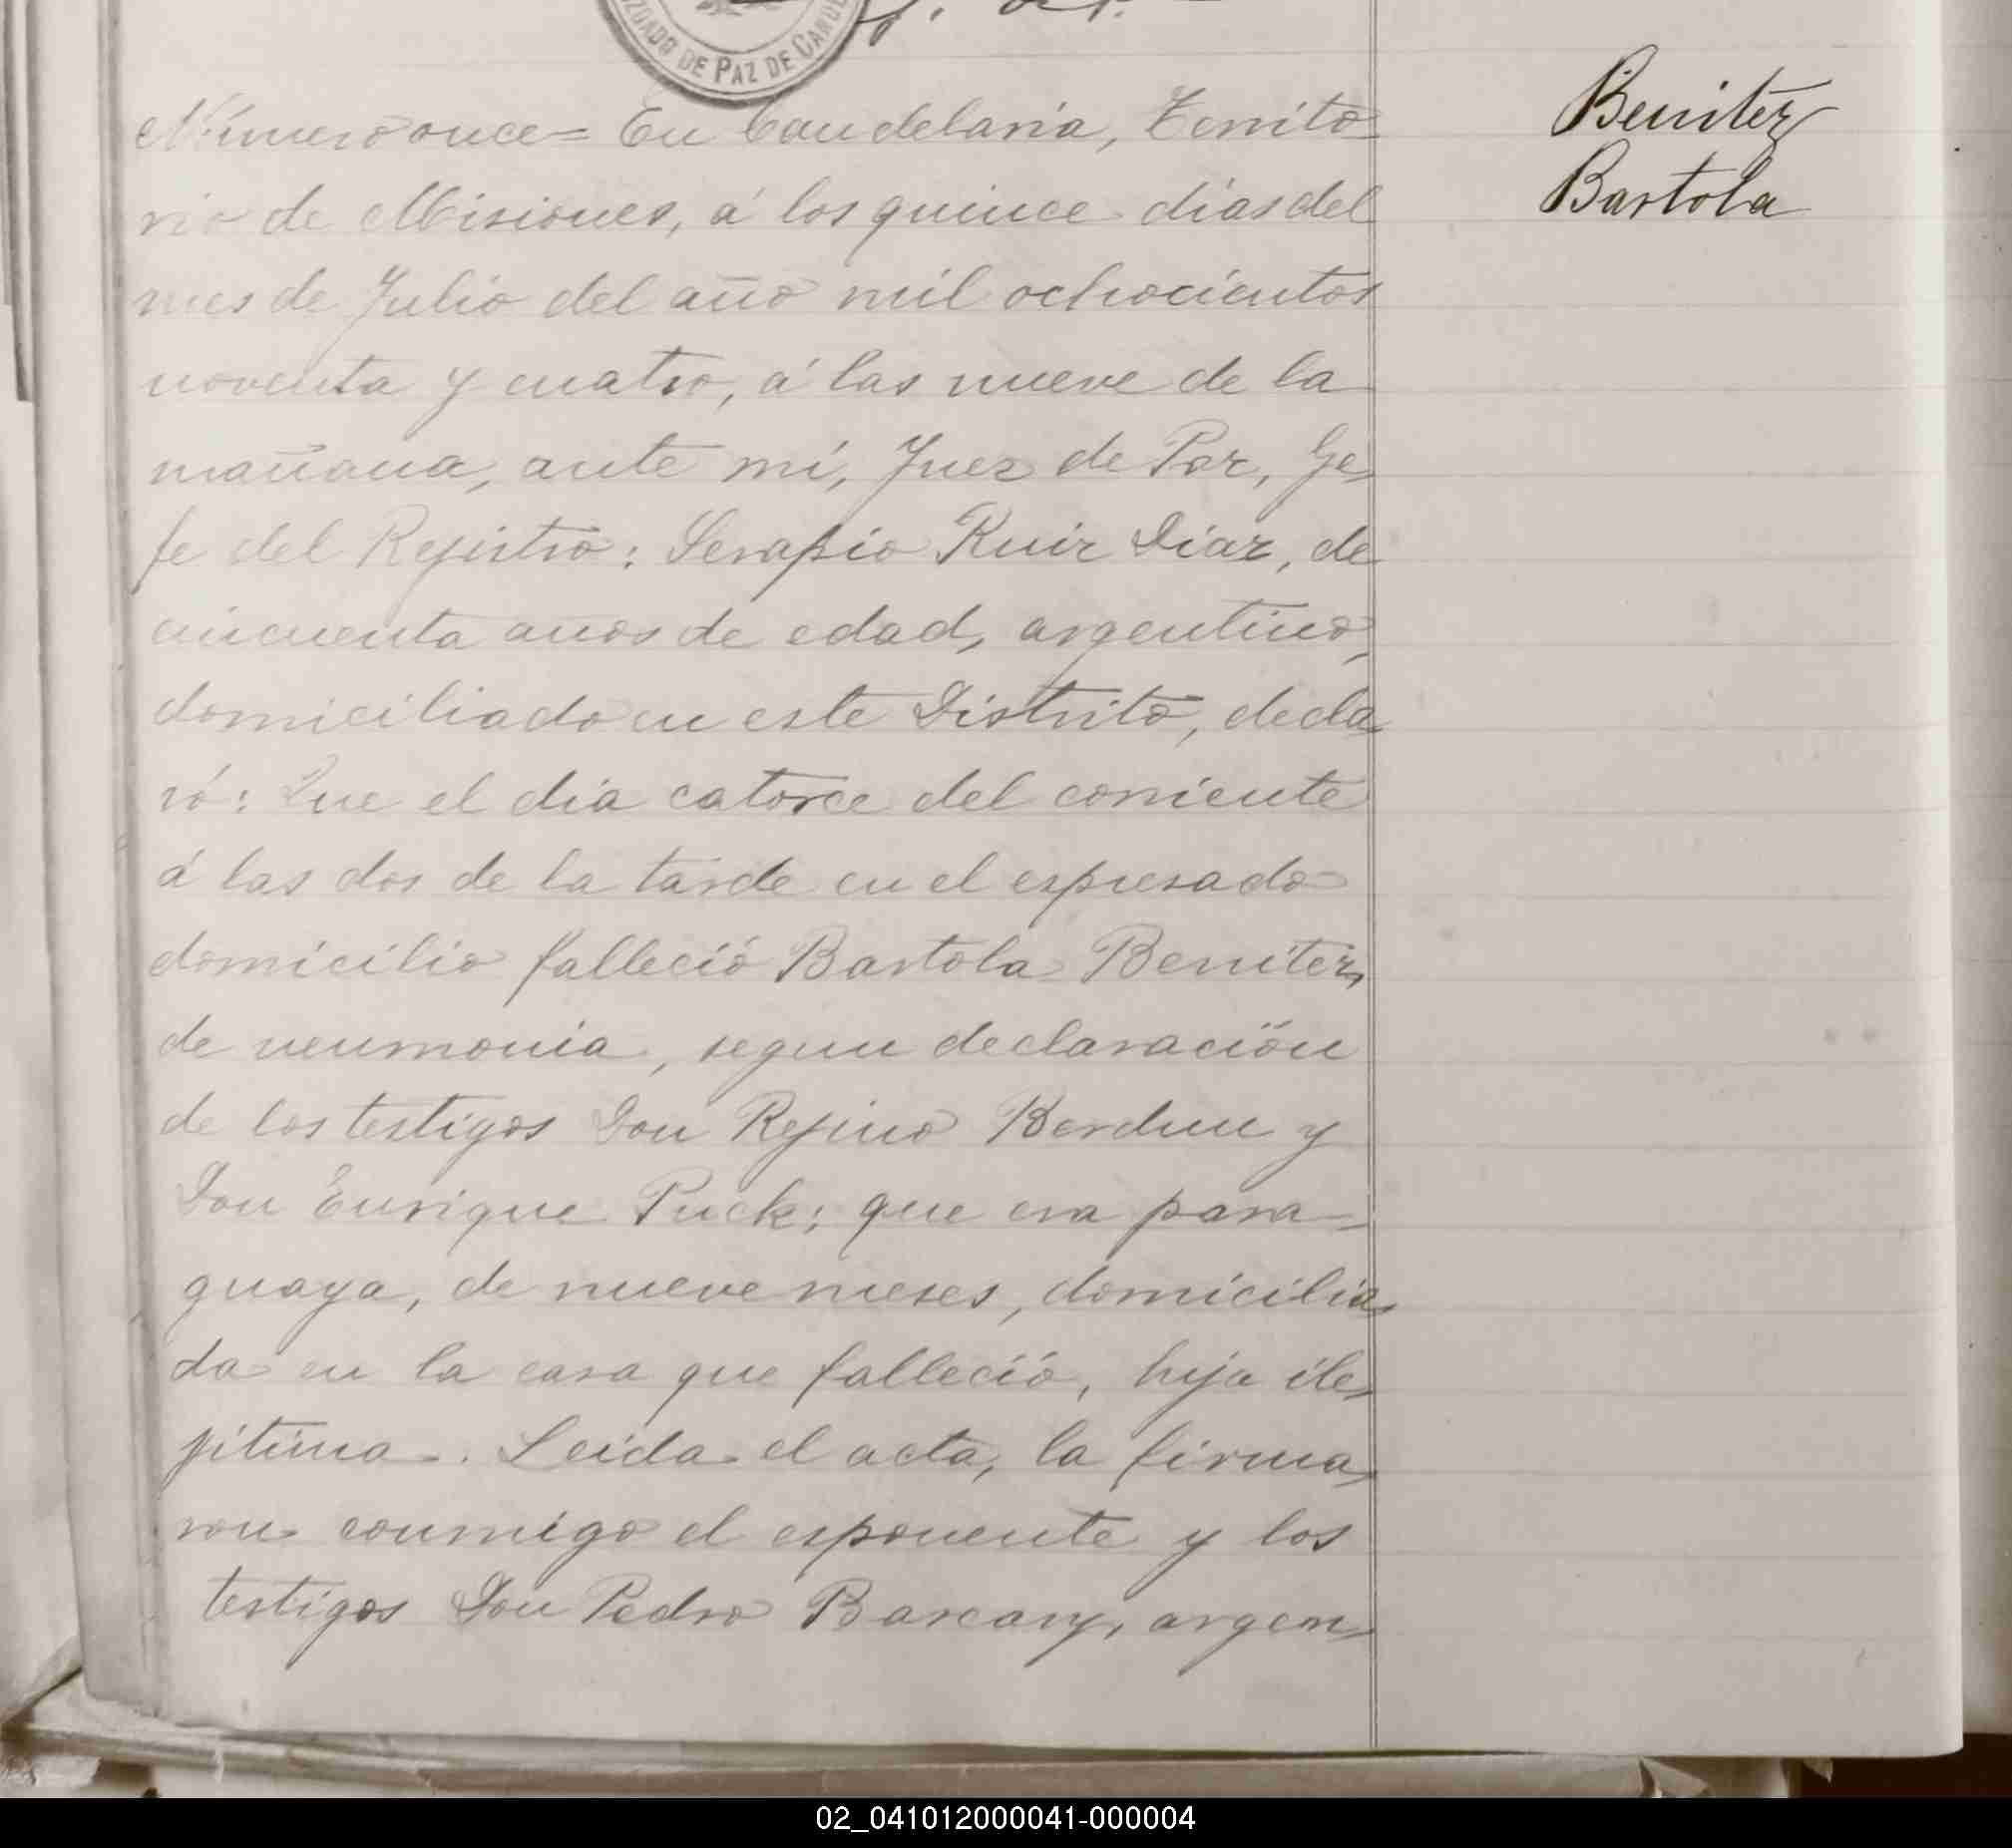 JUZGADO DE PAZ DE CANDE
Número once = En Candelaria, Territo-
rio de Misiones, á los quince dias del
mes de Julio del año mil ochocientos
noventa y cuatro, á las nueve de la
mañana, ante mí, Juez de Paz, Ge-
fe del Rejistro: Serapio Ruiz Diaz, de
cincuenta años de edad, argentino,
domiciliado en este Distrito, decla-
ró: Que el dia catorce del corriente
á las dos de la tarde en el espresado
domicilio falleció Bartola Benitez,
de neumonia, segun declaración
de los testigos Don Rejino Berdun y
Don Enrique Puck; que era para-
guaya, de nueve meses, domicilia-
da en la casa que falleció, hija ile-
jitima. Leida el acta, la firma-
ron conmigo el esponente y los
testigos Don Pedro Bascary, argen-
Benitez
Bartola
02_041012000041-000004